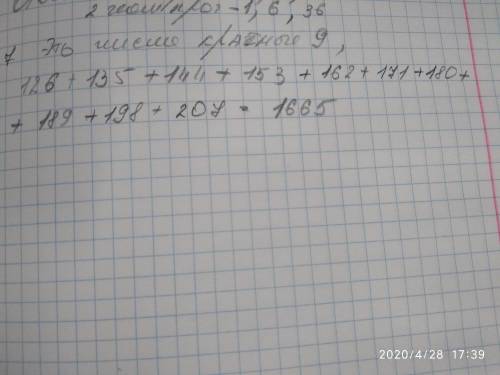 2 геом прог - 1, 6, 36
7 это числа кратные 9,
126 + 135 + 144 + 153 + 162 + 171 + 180 +
+ 189 + 198 + 207 = 1665
2020/4/28 17:39